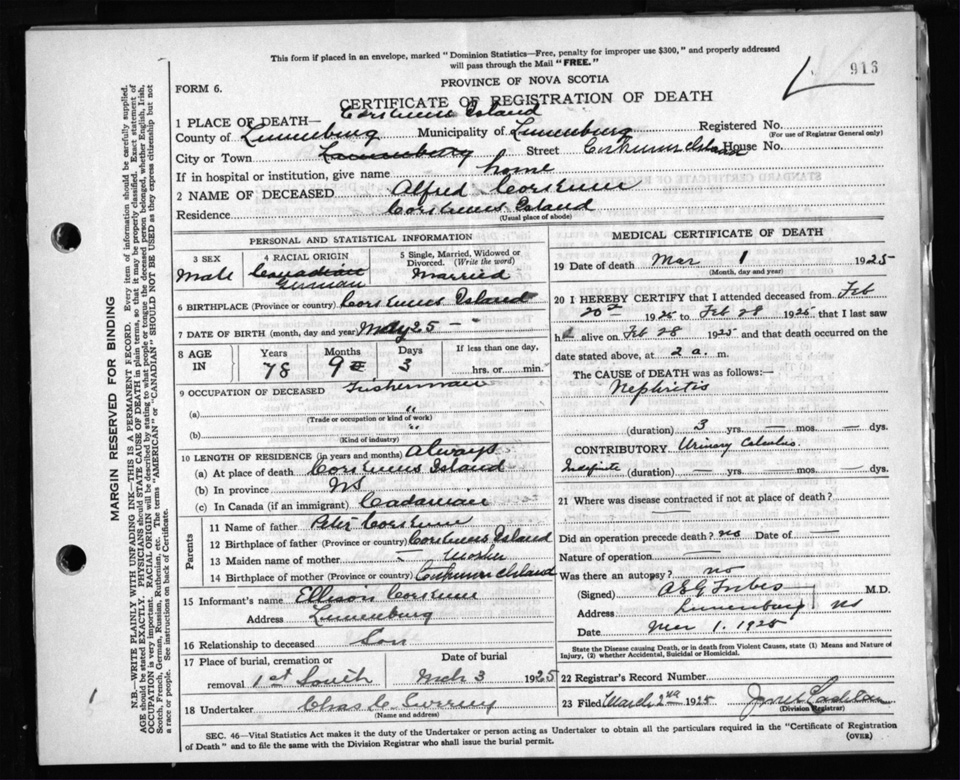 This form if placed in an envelope, marked "Dominion Statistics—Free, penalty for improper use $300," and properly addressed
will pass through the Mail "FREE."
913
FORM 6.
PROVINCE OF NOVA SCOTIA
CERTIFICATE OF REGISTRATION OF DEATH
1 PLACE OF DEATH— Corkums Island
County of Lunenburg Municipality of Lunenburg Registered No.
(For use of Registrar General only)
City or Town Lunenburg Street Corkums Island House No.
If in hospital or institution, give name home
2 NAME OF DECEASED Alfred Corkum
Residence Corkums Island
(Usual place of abode)
PERSONAL AND STATISTICAL INFORMATION
3 SEX
Male
4 RACIAL ORIGIN
Canadian
German
5 Single, Married, Widowed or
Divorced. (Write the word)
Married
6 BIRTHPLACE (Province or country) Corkums Island
7 DATE OF BIRTH (month, day and year) May 25 —
8 AGE IN
Years Months Days If less than one day,
78 9 3 hrs. or min.
9 OCCUPATION OF DECEASED Fisherman
(a) "
(Trade or occupation or kind of work)
(b) "
(Kind of industry)
10 LENGTH OF RESIDENCE (in years and months) Always
(a) At place of death Corkums Island
(b) In province NS
(c) In Canada (if an immigrant) Cadamian
Parents
11 Name of father Peter Corkum
12 Birthplace of father (Province or country) Corkums Island
13 Maiden name of mother — Mosher
14 Birthplace of mother (Province or country) Corkums Island
15 Informant's name Ellison Corkum
Address Lunenburg
16 Relationship to deceased Son
17 Place of burial, cremation or
removal 1st South
Date of burial
Mch 3 1925
18 Undertaker Chas
(Name and address)
MEDICAL CERTIFICATE OF DEATH
19 Date of death Mar 1 1925
(Month, day and year)
20 I HEREBY CERTIFY that I attended deceased from Feb
20 1925 to Feb 28 1925 that I last saw
h alive on Feb 28 1925 and that death occurred on the
date stated above, at 2 a. m.
The CAUSE OF DEATH was as follows:—
Nephritis
(duration) 3 yrs. — mos. — dys.
CONTRIBUTORY Urinary Calculus.
Indefinite (duration) — yrs. — mos. — dys.
21 Where was disease contracted if not at place of death?
—
Did an operation precede death? no Date of —
Nature of operation —
Was there an autopsy? no
(Signed) Forbes M.D.
Address Lunenburg NS
Date Mar 1. 1925
State the Disease causing Death, or in death from Violent Causes, state (1) Means and Nature of
Injury, (2) whether Accidental, Suicidal or Homicidal.
22 Registrar's Record Number
23 Filed March 2nd 1925
(Division Registrar)
SEC. 46—Vital Statistics Act makes it the duty of the Undertaker or person acting as Undertaker to obtain all the particulars required in the "Certificate of Registration
of Death" and to file the same with the Division Registrar who shall issue the burial permit.
(OVER)
MARGIN RESERVED FOR BINDING
N.B.—WRITE PLAINLY WITH UNFADING INK—THIS IS A PERMANENT RECORD. Every item of information should be carefully supplied.
AGE should be stated EXACTLY. PHYSICIANS should STATE CAUSE OF DEATH in plain terms, so that it may be properly classified. Exact statement of
OCCUPATION is very important. RACIAL ORIGIN will be described by stating to what people or race the deceased person belonged, whether English, Irish,
Scotch, French, German, Russian, Ruthenian, etc. The terms "AMERICAN" or "CANADIAN" SHOULD NOT BE USED as they express citizenship but not
a race or people. See instructions on back of Certificate.